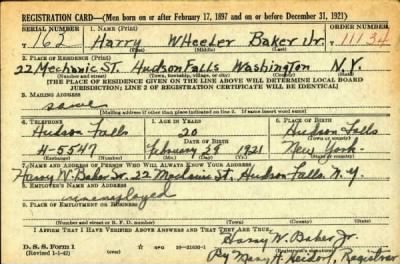 REGISTRATION CARD—(Men born on or after February 17, 1897 and on or before December 31, 1921)
SERIAL NUMBER 1. NAME (Print) ORDER NUMBER
162 Harry Wheeler Baker Jr. 11134
(First) (Middle) (Last)
2. PLACE OF RESIDENCE (Print)
22 Mechanic St. Hudson Falls Washington N.Y.
(Number and street) (Town, township, village, or city) (County) (State)
[THE PLACE OF RESIDENCE GIVEN ON THE LINE ABOVE WILL DETERMINE LOCAL BOARD
JURISDICTION; LINE 2 OF REGISTRATION CERTIFICATE WILL BE IDENTICAL]
3. MAILING ADDRESS
same
[Mailing address if other than place indicated on line 2. If same insert word same]
4. TELEPHONE 5. AGE IN YEARS 6. PLACE OF BIRTH
Hudson Falls 20 Hudson Falls
DATE OF BIRTH (Town or county)
4-5547 February 29 1921 New York
(Exchange) (Number) (Mo.) (Day) (Yr.) (State or country)
7. NAME AND ADDRESS OF PERSON WHO WILL ALWAYS KNOW YOUR ADDRESS
Harry W. Baker Sr. 22 Mechanic St. Hudson Falls N.Y.
8. EMPLOYER'S NAME AND ADDRESS
unemployed
9. PLACE OF EMPLOYMENT OR BUSINESS
(Number and street or R. F. D. number) (Town) (County) (State)
I AFFIRM THAT I HAVE VERIFIED ABOVE ANSWERS AND THAT THEY ARE TRUE.
Harry W. Baker Jr.
D. S. S. Form 1 (Registrant's signature)
(Revised 1-1-42) By Mary H. Registrar